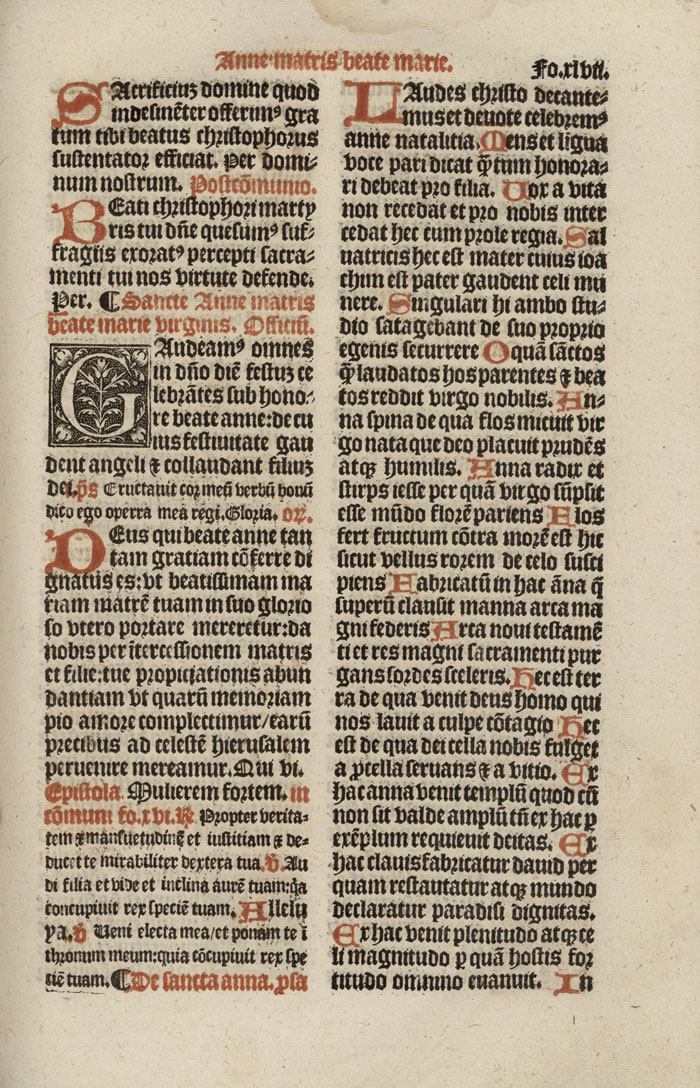 Anne matris beate marie.
Fo.xlvii.
SAcrificiuȝ domine quod
indesinēter offerimꝰ gra
tum tibi beatus christophorus
sustentator efficiat. Per domi-
num nostrum. Postcōmunio.
BEati christophori marty
ris tui dn̄e quesumꝰ suf-
fragiis exoratꝰ percepti sacra-
menti tui nos virtute defende.
Per. ¶ Sancte Anne matris
beate marie virginis. Officiū.
GAudeamꝰ omnes
in dn̄o diē festuȝ ce
lebrātes sub hono-
re beate anne: de cu
ius festiuitate gau
dent angeli ⁊ collaudant filiuȝ
dei. p̄s Eructauit cor meū verbū bonū
dico ego operra mea regi. Gloria. or̄.
DEus qui beate anne tan
tam gratiam cōferre di
gnatus es: vt beatissimam ma
riam matrē tuam in suo glorio
so vtero portare mereretur: da
nobis per ītercessionem matris
et filie: tue propiciationis abun
dantiam vt quarū memoriam
pio amore complectimur/earū
precibus ad celestē hierusalem
peruenire mereamur. Qui vi.
Epistola. Mulierem fortem. in
cōmuni fo. xvi. ꝶ Propter verita-
tem ⁊ mansuetudinē et iustitiam ⁊ de-
ducet te mirabiliter dextera tua. ℣. Au
di filia et vide et inclina aurē tuam: q̄a
concupiuit rex speciē tuam. Allelu
ya. ℣ Ueni electa mea/et ponam te ī
thronum meum: quia cōcupiuit rex spe
ciē tuam. ¶ De sancta anna. ꝓsa
LAudes christo decante-
mus et deuote celebremꝰ
anne natalitia. Mens et līgua
voce pari dicat q̄tum honora-
ri debeat pro filia. Uox a vita
non recedat et pro nobis inter
cedat hec cum prole regia. Sal
uatricis hec est mater cuius ioa
chim est pater gaudent celi mu
nere. Singulari hi ambo stu-
dio satagebant de suo proprio
egenis securrere O quā sāctos
q̄ laudatos hos parentes ⁊ bea
tos reddit virgo nobilis. An-
na spina de qua flos micuit vir
go nata que deo placuit prudēs
atqꝫ humilis. Anna radix et
stirps iesse per quā virgo sūpsit
esse mūdo florē pariens Flos
fert fructum cōtra morē est hic
sicut vellus rorem de celo susci
piens Fabricatū in hac āna q̄
superū clausit manna arca ma
gni federis Arca noui testamē
ti et res magni sacramenti pur
gans sordes sceleris. Hec est ter
ra de qua venit deus homo qui
nos lauit a culpe cōtagio Hec
est de qua dei cella nobis fulget
a ꝓcella seruans ⁊ a vitio. Ex
hac anna venit templū quod cū
non sit valde amplū tn̄ ex hac ꝑ
exēplum requieuit deitas. Ex
hac clauis fabricatur dauid per
quam restautatur atqꝫ mundo
declaratur paradisi dignitas.
Ex hac venit plenitudo atqꝫ ce
li magnitudo ꝑ quā hostis for
titudo omnino euanuit. In